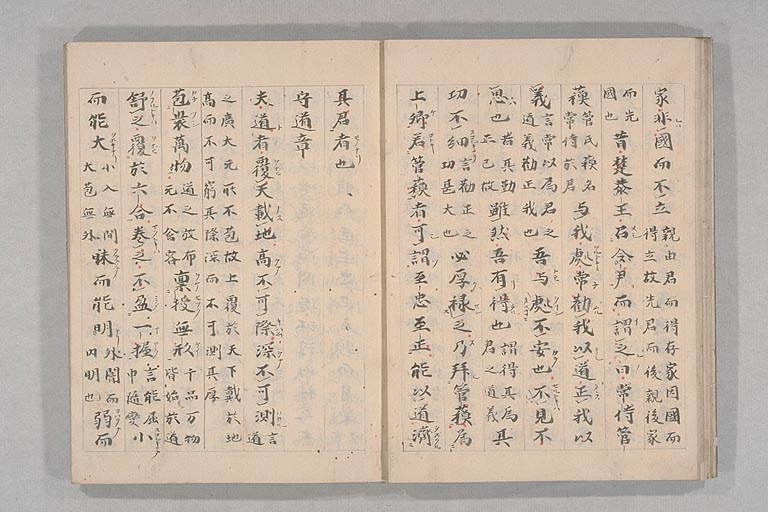 家非國而不立親由君而得存家因國而得立故先君而後親後家
而先國也昔楚恭王召令尹而謂之曰常侍管
蘓管氏蘓名常侍於君与我處常勸我以道正我以
義言常以為君之道義勸正我也吾与處不安也不見不
思也若其勤正已故雖然吾有得也謂得其為君之道義其
功不細言勸正之功甚大也必厚禄之乃拜管蘓為
上卿若管蘓者可謂至忠至正能以道濟
其君者也
守道章
夫道者覆天載地高不可際深不可測言道
之廣大元所不苞故上覆於天下戴於地
高而不可窮其際深而不可測其厚
苞裴萬物道之放布元不舍容禀授無形千品万物皆始於道
舒之覆於六合卷之不盈一握言能屈申隨變小
而能大小入無間大苞無外昧而能明外闇而内明也弱而